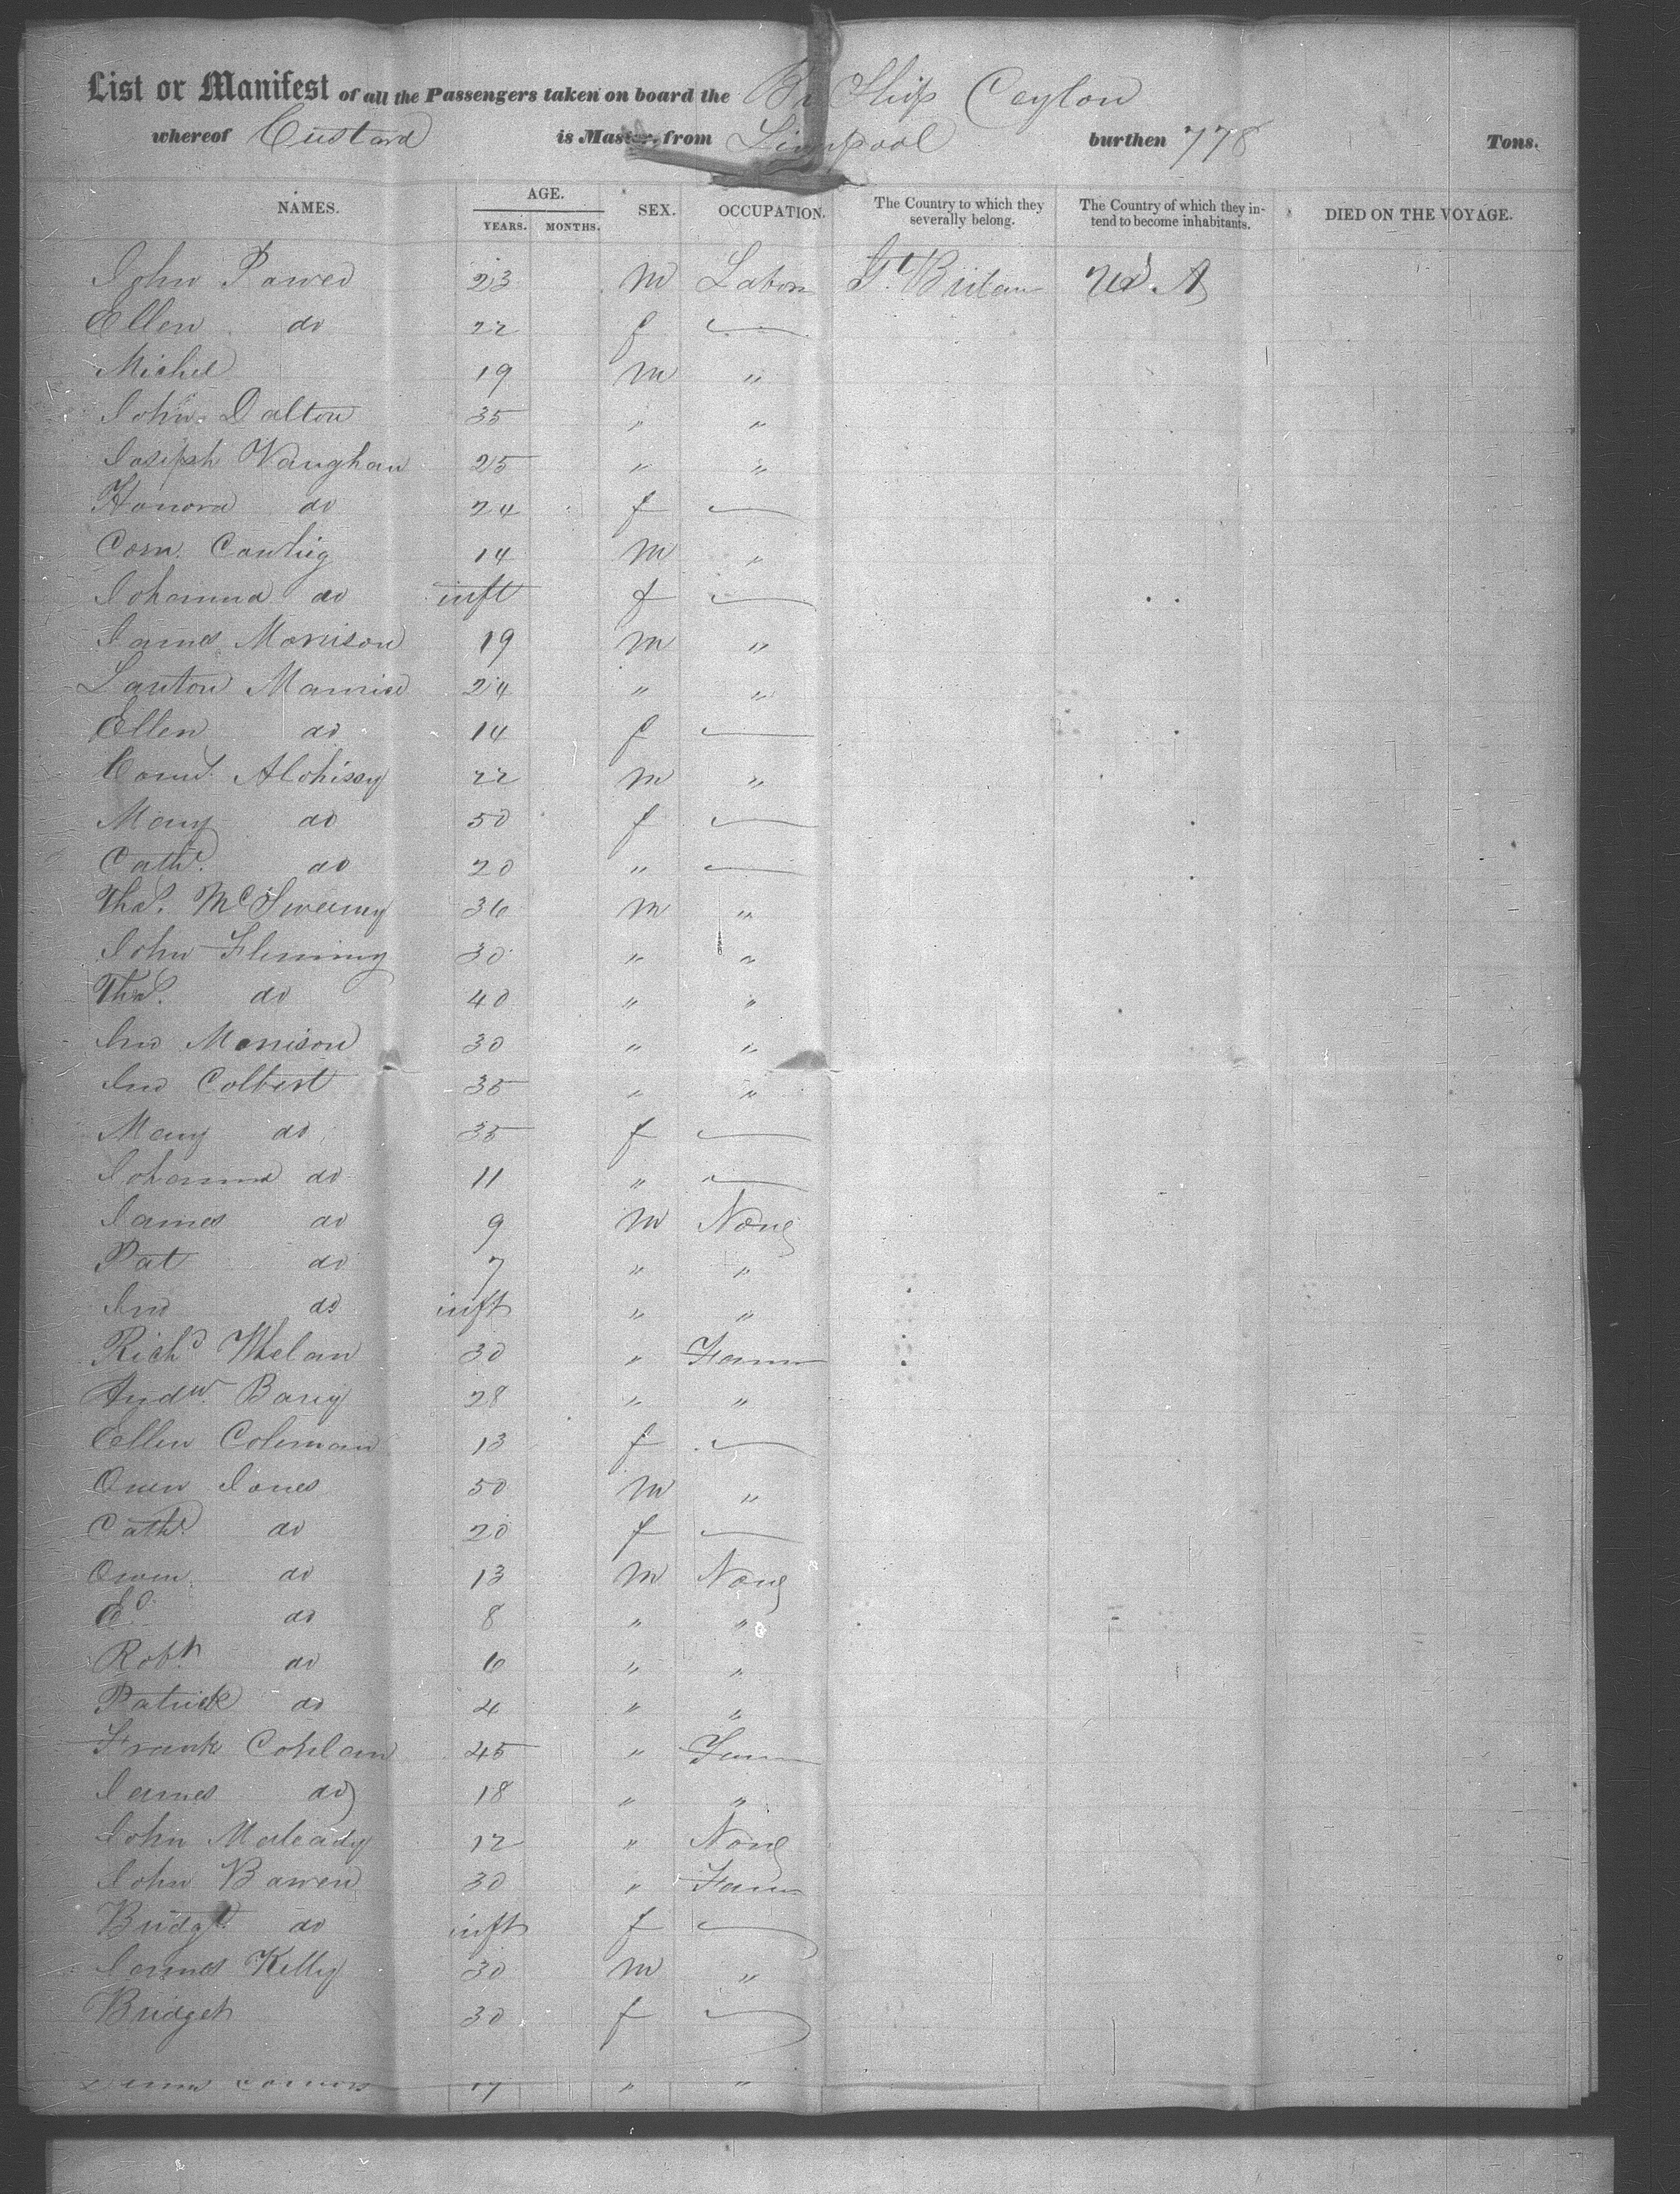 List or Manifest of all the Passengers taken on board the Br Ship Ceylon
whereof Custard is Master, from Liverpool burthen 778 Tons.
NAMES. AGE. YEARS. MONTHS. SEX. OCCUPATION. The Country to which they severally belong. The Country of which they intend to become inhabitants. DIED ON THE VOYAGE.
John Power 23 M Labor Gt Britain U.S.A
Ellen do 22 f
Michel 19 M "
John Dalton 35 " "
Joseph Vaughan 25 " "
Honora do 24 f
Corn. 14 M "
Johanna do inft f
James Morrison 19 M "
Maurice 24 " "
Ellen do 14 f
22 M "
Mary do 50 f
Cathe do 20 "
Thos. McSweeney 36 M "
John Fleming 30 " "
Thos. do 40 " "
Jno Morrison 30 " "
Jno Colbert 35 " "
Mary do 35 f
Johanna do 11 "
James do 9 M None
Pat do 7 " "
Jno do inft " "
Richd Whelan 30 " Farmr
Andw. Barry 28 " "
Ellen Coleman 13 f
Owen Jones 50 M "
Cathe do 20 f
Owen do 13 M None
Ed. do 8 " "
Robt do 6 " "
Patrick do 4 " "
Frank 45 " Farm
James do 18 " "
John Maleady 12 " None
John Bowen 30 " Farm
Bridgt do inft f
James Kelly 30 M "
Bridget 30 f
17 " "